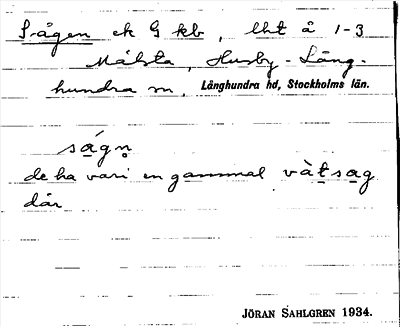 Sågen ek G kb, lht å 1-3
Målsta, Husby-Lång-
hundra sn, Långhundra hd, Stockholms län.
ságn̥
de ha vari en gammal vàtsag
där
JÖRAN SAHLGREN 1934.